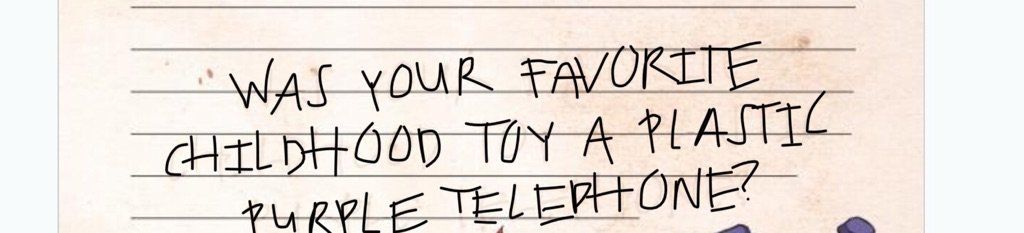 WAS YOUR FAVORITE
CHILDHOOD TOY A PLASTIC
PURPLE TELEPHONE?